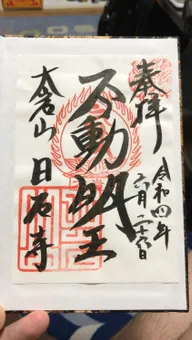 奉拝
令和四年
六月二十日
不動明王
大岩山 日石寺